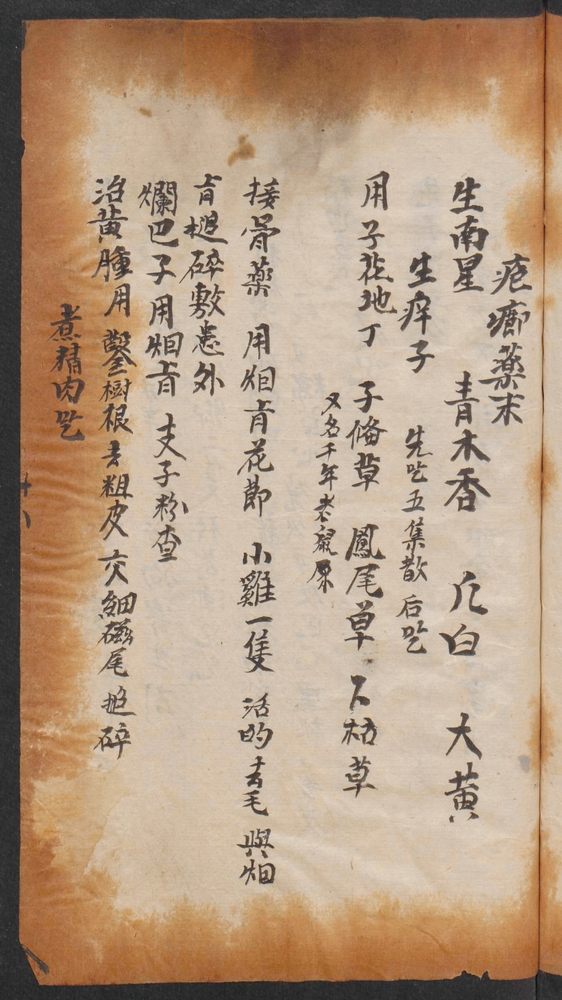 疤癤薬末
生南星 青木香 大白 大黄
生痒子 先吃五集散 后吃
用子花地丁 子脩草 鳳尾草 下枯草
又名千年老鼠屎
接骨薬 用烟肓花節 小雞一隻 活的 去毛 與烟
肓搥碎敷患外
爛巴子用烟肓 夫子粉查
治黄腫用 樹根 去粗皮 交細磁尾 搥碎
煮精肉吃